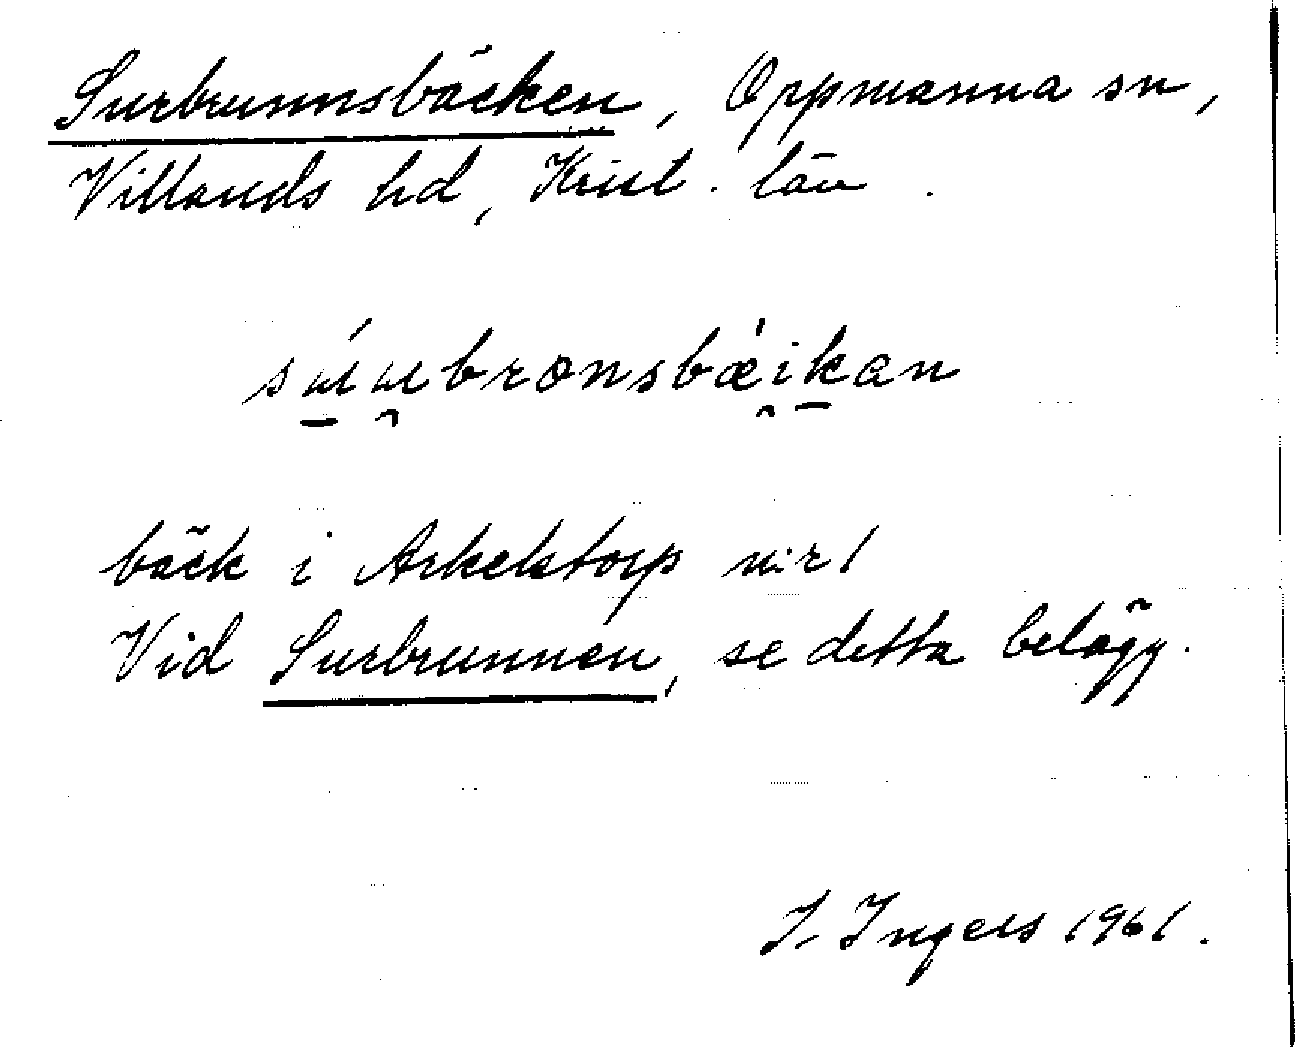 Surbrunnsbäcken, Oppmanna sn,
Villands hd, Krist. län.
bäck i Arkelstorp n:r 1
Vid Surbrunnen, se detta belägg.
I. Ingers 1961.